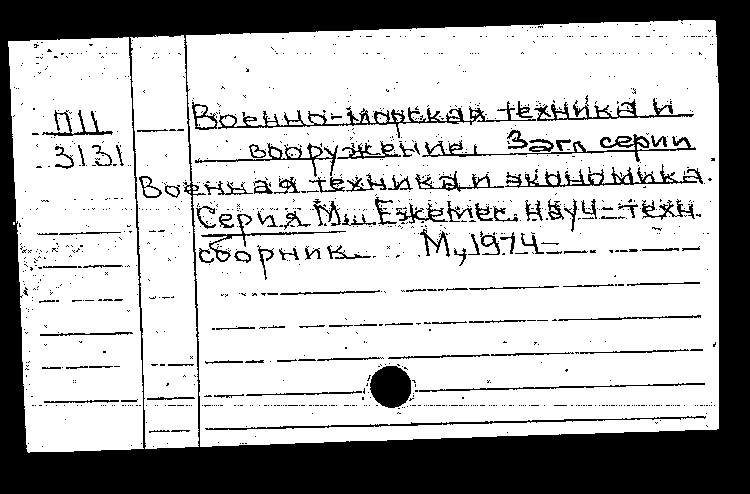 П11
3131
Военно-морская техника и
вооружение. Загл серии
Военная техника и экономика.
Серия М... Ежемес. науч-техн.
сборник. М., 1974-